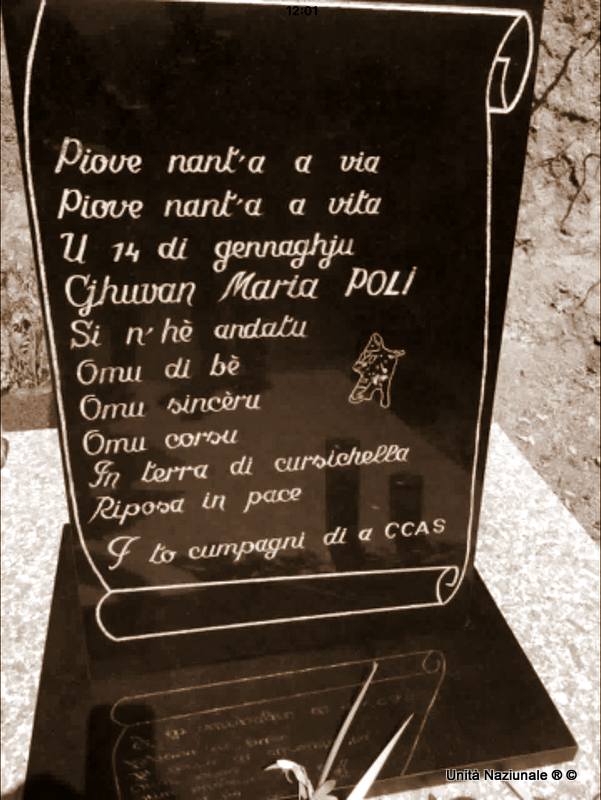 12:01
Piove nant'a a via
Piove nant'a a vita
U 14 di gennaghju
Ghjuvan Maria POLI
Si n'hè andatu
Omu di bè
Omu sincèru
Omu corsu
In terra di cursichella
Riposa in pace
I to cumpagni di a CCAS
Unità Naziunale ® ©